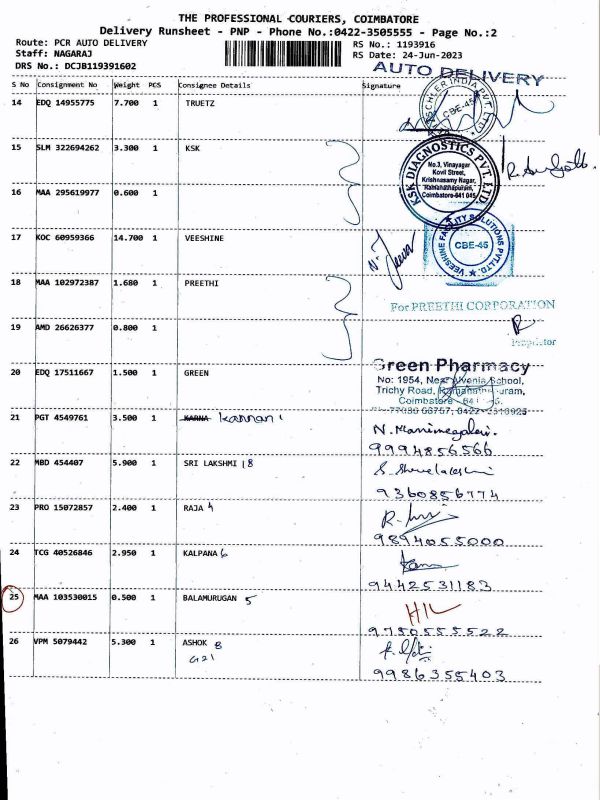 THE PROFESSIONAL COURIERS, COIMBATORE
Delivery Runsheet - PNP - Phone No.:0422-3505555 - Page No.:2
Route: PCR AUTO DELIVERY
RS No.: 1193916
Staff: NAGARAJ
RS Date: 24-Jun-2023
DRS No.: DCJB119391602
AUTO DELIVERY
S No Consignment No Weight PCS Consignee Details Signature
14 EDQ 14955775 7.700 1 TRUETZ
CBE-45
15 SLM 322694262 3.300 1 KSK
KSK DIAGNOSTICS PVT. LTD
No.3, Vinayagar
Kovil Street,
Krishnasamy Nagar,
Ramanathapuram,
Coimbatore-641 045
16 MAA 295619977 0.600 1
17 KOC 60959366 14.700 1 VEESHINE
VEESHINE FACILITY SOLUTIONS PVT.LTD.
CBE-45
18 MAA 102972387 1.680 1 PREETHI
For PREETHI CORPORATION
19 AMD 26626377 0.800 1
Proprietor
20 EDQ 17511667 1.500 1 GREEN
Green Pharmacy
No: 1954, Near Alvenia School,
Trichy Road, Ramanathapuram,
Coimbatore - 641 045.
21 PGT 4549761 3.500 1 KARNA Kannan
N. Manimegalai.
9994856566
22 MBD 454407 5.900 1 SRI LAKSHMI 18
9360856774
23 PRO 15072857 2.400 1 RAJA 4
9894055000
24 TCG 40526846 2.950 1 KALPANA 6
9442531183
25 MAA 103530015 0.500 1 BALAMURUGAN 5
9750555522
26 VPM 5079442 5.300 1 ASHOK 8
G21
9986355403